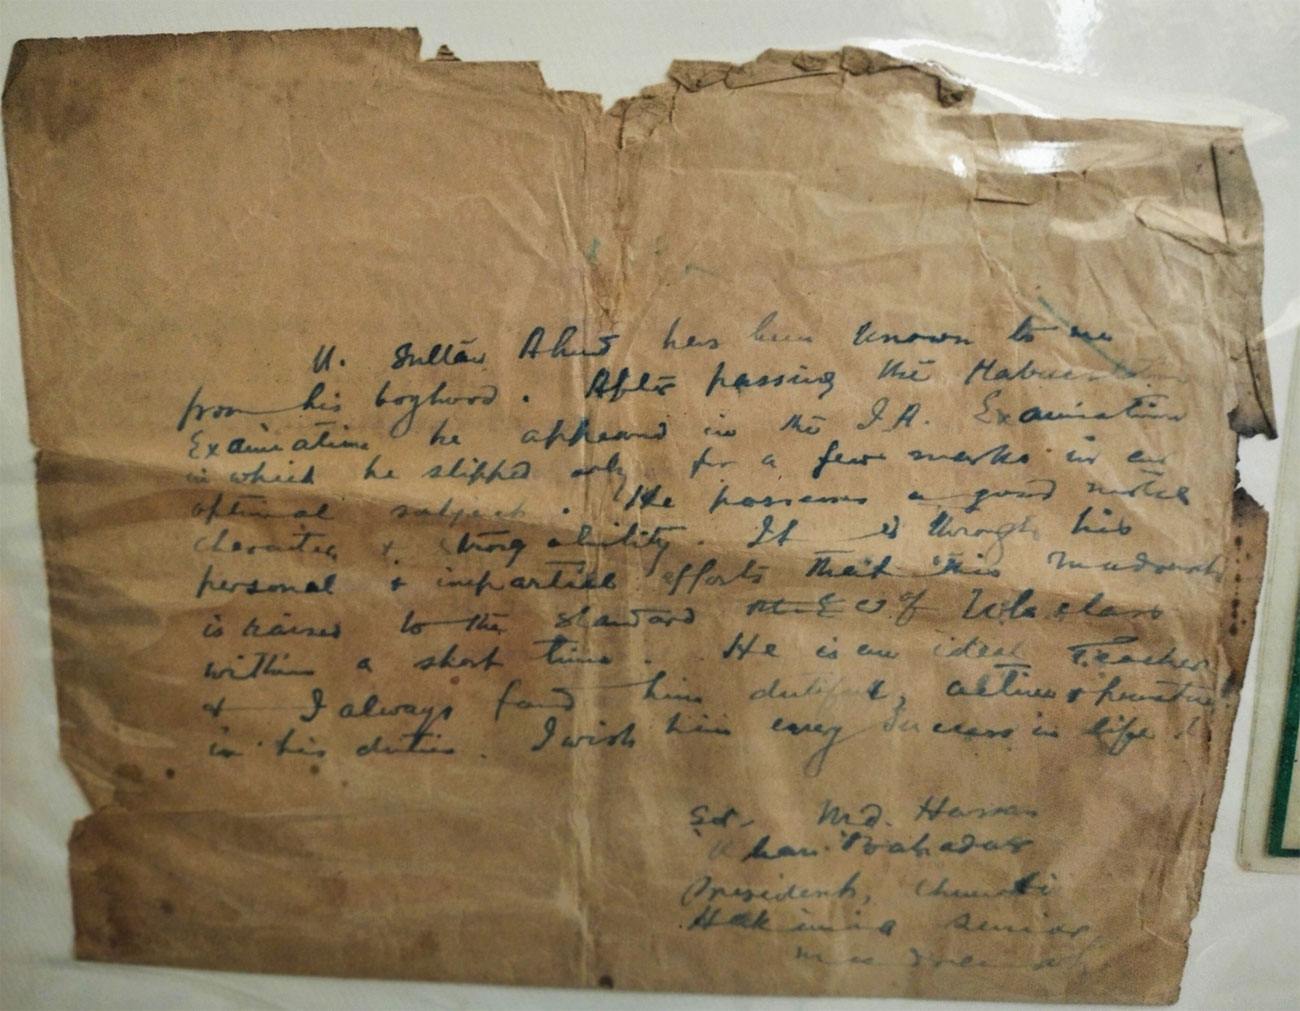 M. Sultan Ahmed has been known to me
from his boyhood. After passing the Matriculation
Examination he appeared in the I.A. Examination
in which he slipped only for a few marks in an
optional subject. He possesses a good moral
character & strong ability. It is through his
personal & impartial efforts that this Madrasah
is raised to the standard of class
within a short time. He is an ideal Teacher
& I always found him dutiful, active &
in his duties. I wish him every success in life!
Sd. Md. Hassan
Khan Bahadur
President, Chunati
Hakimia Senior
Madrasah.